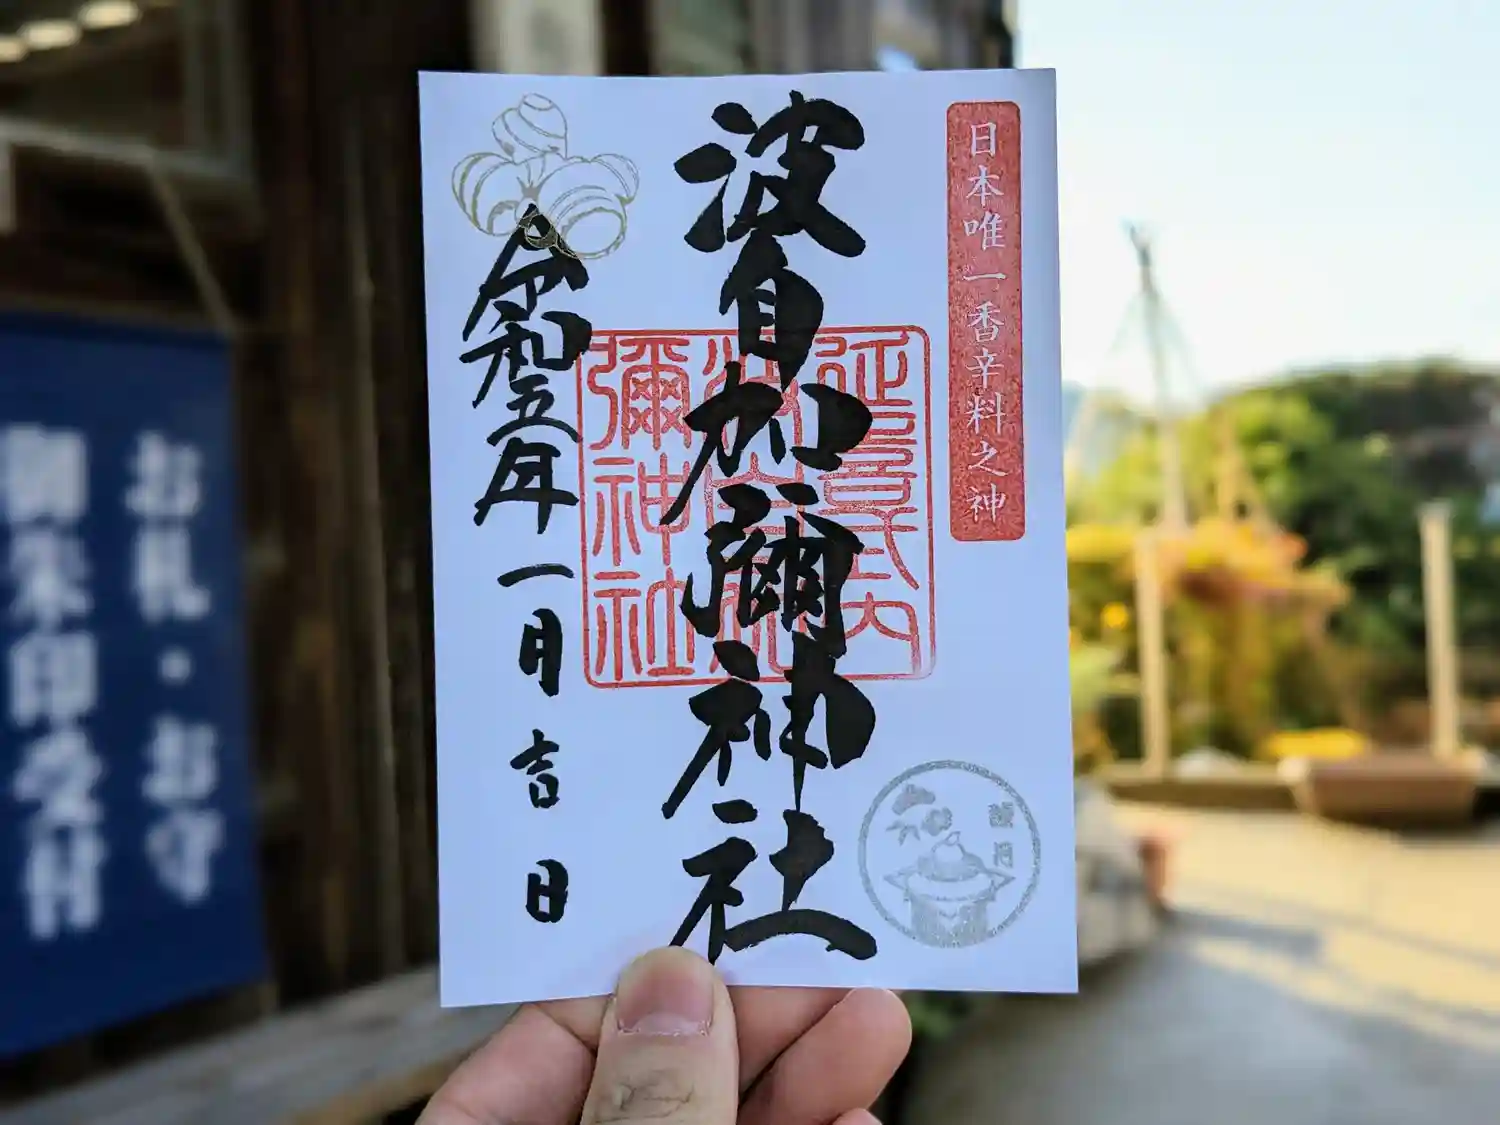 日本唯一香辛料之神
波自加彌神社
延喜式内
波自加
彌神社
令和五年一月吉日
お札・お守
御朱印受付